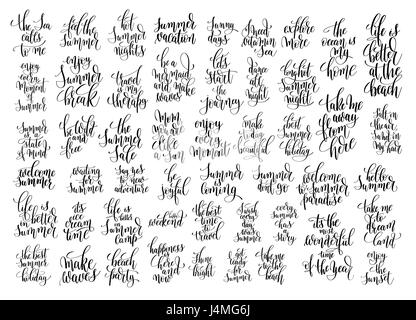 the Sea
calls
to me
feel the
Summer
hot
Summer
nights
Summer
vacation
Sunny
days
I need
vitamin
Sea
explore
more
the
ocean is
my
home
life is
better
at the
beach
enjoy
every
moment
of
Summer
enjoy
Summer
break
travel is
my
therapy
be a
mermaid
and make
waves
let's
start
the
journey
dance
all
night
bright
Summer
night
take me
away
from
here
Salt in
the air
Sand in
my hair
Summer
is a
state
of mind
be wild
and
free
the
Summer
Sale
enjoy
every
moment
make
beautiful
best
Summer
holiday
welcome
Summer
waiting
for
Summer
Say yes
to new
adventure
be
joyful
Summer is
coming
Summer
don't go
welcome to
Summer
paradise
hello
Summer
life is
better
in
Summer
it's
ice
cream
time
life is
better
in Summer
camp
weekend
the best
time to
travel
every
Summer
has a
story
it's the
most
wonderful
time
of the year
take
me to
dream
land
the best
Summer
holiday
make
waves
beach
party
happiness
here and
now
Shine
bright
get
ready for
Summer
take me
to the
beach
enjoy
the
Sunset
alamy
J4MG6J